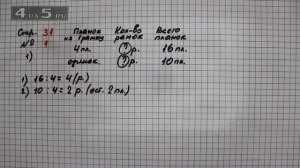 4 DA 5 . RU
Стр. 31 Планок на 1 рамку Кол-во рамок Всего планок
№ 1
1) 4 пл. ? р. 16 пл.
одинак. ? р. 10 пл.
1) 16 : 4 = 4 (р.)
2) 10 : 4 = 2 р. (ост. 2 пл.)